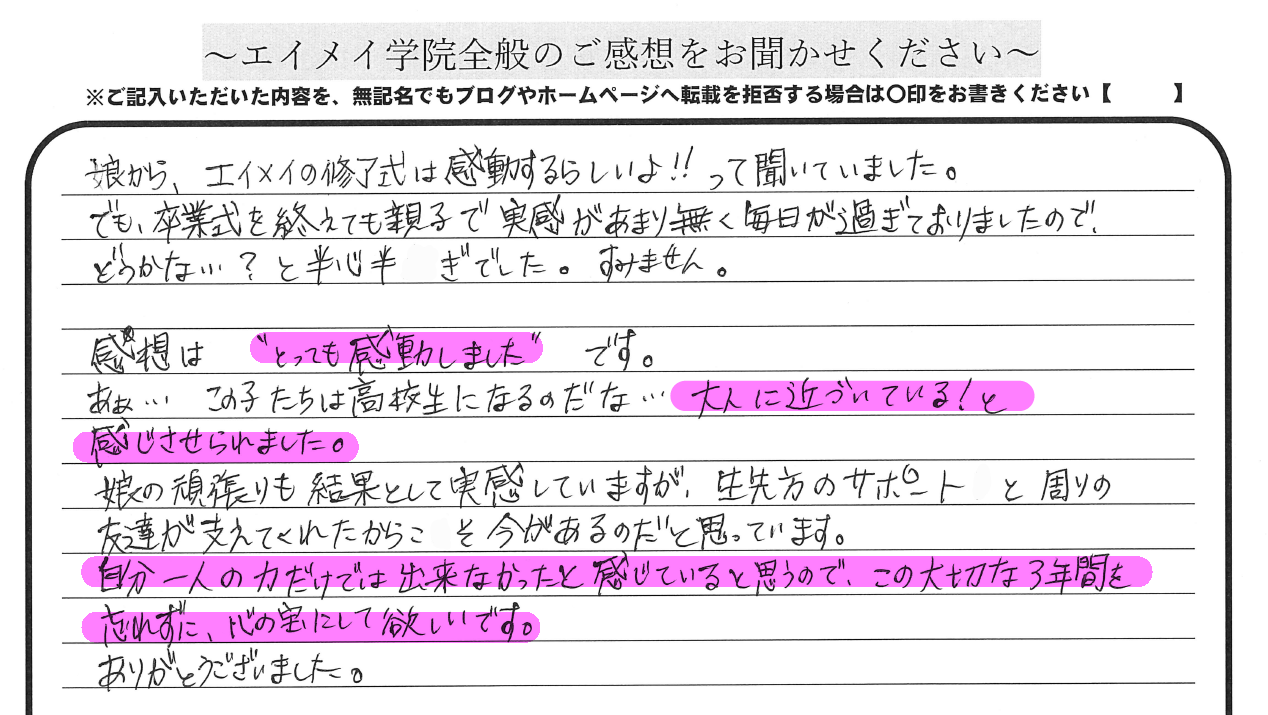 ～エイメイ学院全般のご感想をお聞かせください～
※ご記入いただいた内容を、無記名でもブログやホームページへ転載を拒否する場合は〇印をお書きください【　　】
娘から、エイメイの修了式は感動するらしいよ!!って聞いていました。
でも、卒業式を終えても親子で実感があまり無く毎日が過ぎておりましたので、
どうかない…？と半心半　ぎでした。すみません。
感想は　〝とっても感動しました〟　です。
あぁ…　この子たちは高校生になるのだな…大人に近づいている！と
感じさせられました。
娘の頑張りも結果として実感していますが、生先方のサポート　と周りの
友達が支えてくれたからこ　そ今があるのだと思っています。
自分一人の力だけでは出来なかったと感じていると思うので、この大切な3年間を
忘れずに、心の宝にして欲しいです。
ありがとうございました。